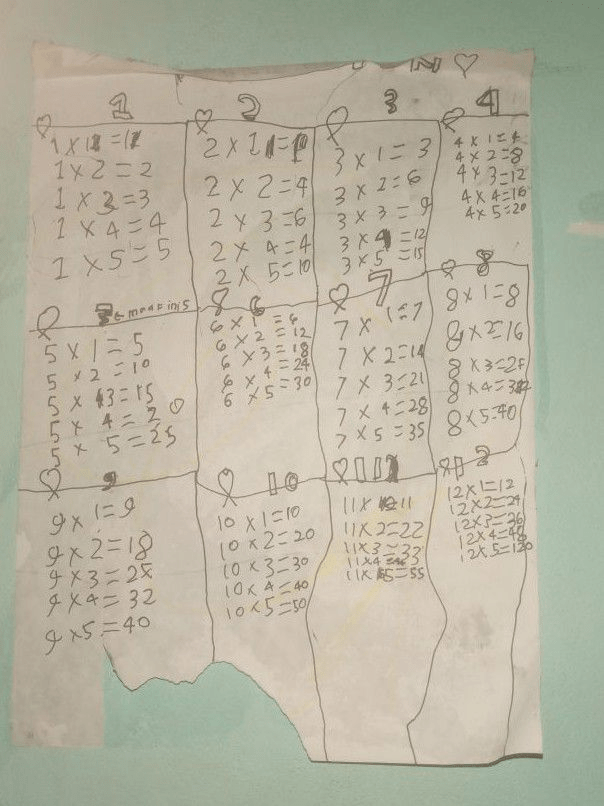 1
1 x 1 = 1
1 x 2 = 2
1 x 3 = 3
1 x 4 = 4
1 x 5 = 5
2
2 x 1 = 1
2 x 2 = 4
2 x 3 = 6
2 x 4 = 4
2 x 5 = 10
3
3 x 1 = 3
3 x 2 = 6
3 x 3 = 9
3 x 4 = 12
3 x 5 = 15
4
4 x 1 = 4
4 x 2 = 8
4 x 3 = 12
4 x 4 = 16
4 x 5 = 20
5 x 1 = 5
5 x 2 = 10
5 x 3 = 15
5 x 4 = 20
5 x 5 = 25
8 6
6 x 1 = 6
6 x 2 = 12
6 x 3 = 18
6 x 4 = 24
6 x 5 = 30
7
7 x 1 = 7
7 x 2 = 14
7 x 3 = 21
7 x 4 = 28
7 x 5 = 35
8
8 x 1 = 8
8 x 2 = 16
8 x 3 =
8 x 4 = 32
8 x 5 = 40
9
9 x 1 = 9
9 x 2 = 18
9 x 3 =
9 x 4 = 32
9 x 5 = 40
10
10 x 1 = 10
10 x 2 = 20
10 x 3 = 30
10 x 4 = 40
10 x 5 = 50
11
11 x 11
11 x 2 = 22
11 x 3 = 33
11 x 4 =
11 x 5 = 55
12
12 x 1 = 12
12 x 2 = 24
12 x 3 = 26
12 x 4 = 48
12 x 5 =